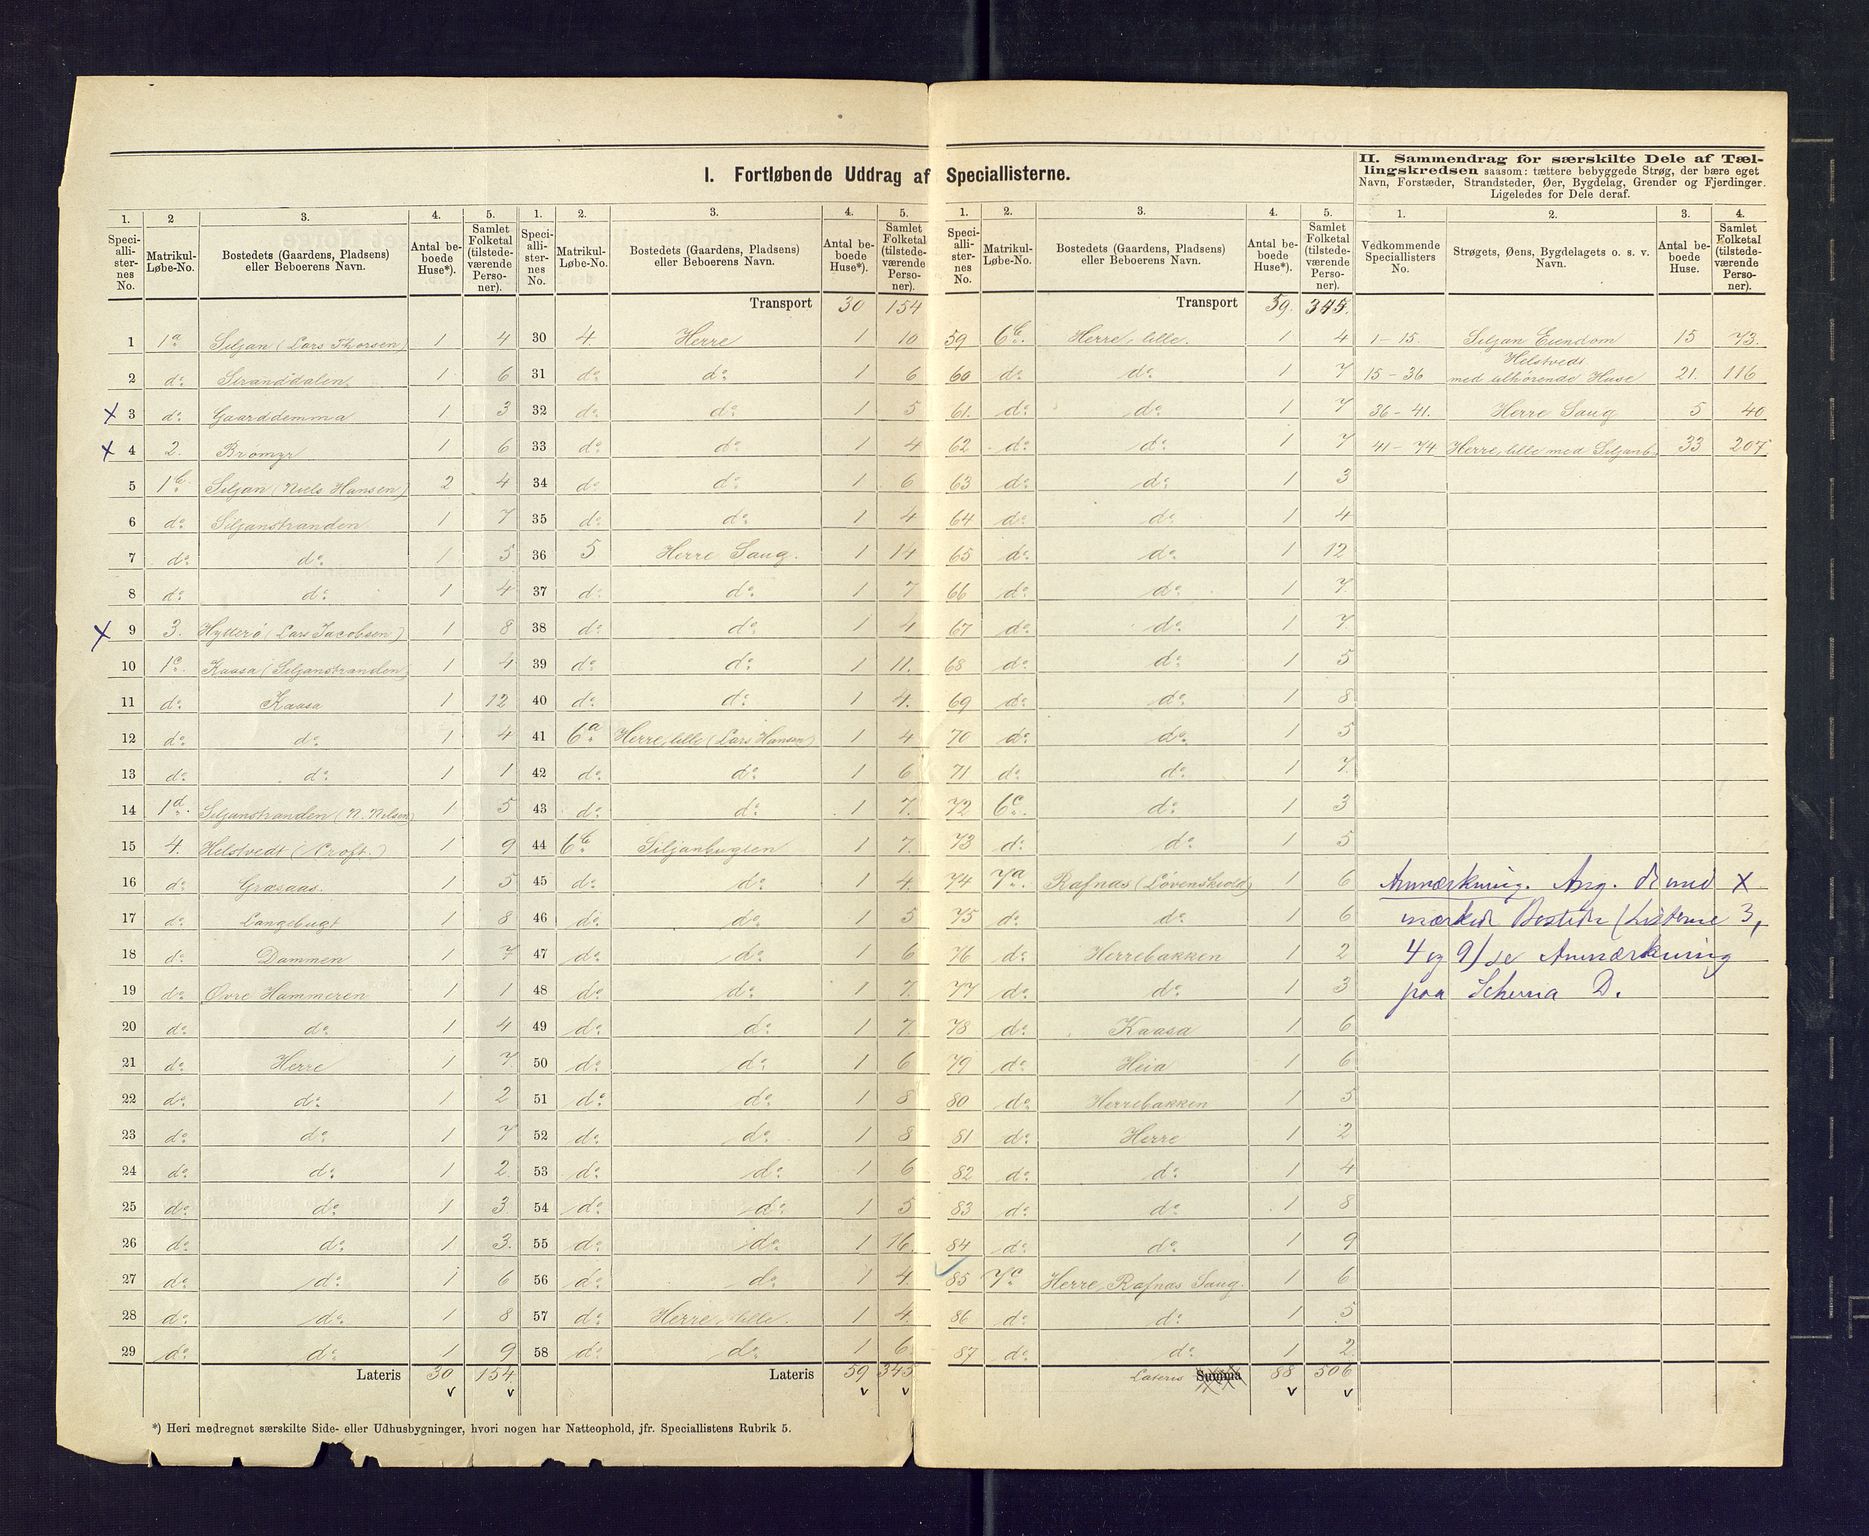 I. Fortløbende Uddrag af Speciallisterne.
II. Sammendrag for særskilte Dele af Tæl-
lingskredsen saasom: tættere bebyggede Strøg, der bære eget
Navn, Forstæder, Strandsteder, Øer, Bygdelag, Grender og Fjerdinger.
Ligeledes for Dele deraf.
1. 2 3. 4. 5. 1. 2. 3. 4. 5. 1. 2. 3. 4. 5. 1. 2. 3. 4.
Speci-alli-ster-nes No. Matrikul-Løbe-No. Bostedets (Gaardens, Pladsens) eller Beboerens Navn. Antal be-boede Huse*). Samlet Folketal (tilstede-værende Perso-ner).
Speci-alli-ster-nes No. Matrikul-Løbe-No. Bostedets (Gaardens, Pladsens) eller Beboerens Navn. Antal be-boede Huse*). Samlet Folketal (tilstede-værende Perso-ner).
Speci-alli-ster-nes No. Matrikul-Løbe-No. Bostedets (Gaardens, Pladsens) eller Beboerens Navn. Antal be-boede Huse*). Samlet Folketal (tilstede-værende Perso-ner).
Vedkommende Speciallisters No. Strøgets, Øens, Bygdelagets o. s. v. Navn. Antal be-boede Huse. Samlet Folketal (tilstede-værende Perso-ner).
1 1a Siljan (Lars Thorsen) 1 4
2 do Stranddalen 1 6
x 3 do Gaarddemma 1 3
x 4 2. Brømyr 1 6
5 1b Siljan (Niels Hansen) 2 4
6 do Siljanstranden 1 7
7 do do 1 5
8 do do 1 4
x 9 3. Hytterø (Lars Jacobsen) 1 8
10 1c Kaasa (Siljanstranden) 1 4
11 do Kaasa 1 12
12 do do 1 4
13 do do 1 1
14 1d Siljanstranden (N. Nilsen) 1 5
15 4. Helstvedt (Croft.) 1 9
16 do Græsaas. 1 5
17 do Langebugt 1 8
18 do Dammen 1 7
19 do Øvre Hammeren 1 1
20 do do 1 4
21 do Herre 1 7
22 do do 1 2
23 do do 1 7
24 do do 1 2
25 do do 1 3.
26 do do 1 3.
27 do do 1 6
28 do do 1 8
29 do do 1 9
Lateris 30 154
v v
Transport 30 154
30 4. Herre 1 10
31 do do 1 6
32 do do 1 5
33 do do 1 4
34 do do 1 6
35 do do 1 4
36 5 Herre Saug. 1 14
37 do do 1 7
38 do do 1 4
39 do do 1 11.
40 do do 1 4.
41 6a Herre, lille (Lars Hansen) 1 4
42 do do 1 6
43 do do 1 7.
44 6b Siljanbugten 1 7.
45 do do 1 4.
46 do do 1 5
47 do do 1 6
48 do do 1 7.
49 do do 1 7.
50 do do 1 6
51 do do 1 8
52 do do 1 8
53 do do 1 6
54 do do 1 5
55 do do 1 16.
56 do do 1 4.
57 do Herre, lille. 1 4.
58 do do 1 6.
Lateris 59 345
v v
Transport 59. 345.
59 6b. Herre, lille. 1 4
60 do do 1 7
61. do do 1 7
62 do do 1 7
63 do do 1 3
64 do do 1 4
65 do do 1 12
66 do do 1 7.
67 do do 1 7.
68 do do 1 5
69 do do 1 8
70 do do 1 5
71 do do 1 7.
72 6c. do 1 3
73 do do 1 5
74 7a. Rafnæs (Løvenskiold) 1 6
75 do do 1 6
76 do Herrebakken 1 2
77 do do 1 3
78 do Kaasa 1 6
79 do Heia 1 6
80 do Herrebakken 1 5
81 do Herre 1 2
82 do do 1 4
83 do do 1 8
84 do do 1 9
85 7c Herre, Rafnæs Saug. 1 6
86 do do 1 5
87 do do 1 2
Lateris Summa 88 506
v v
1-15. Siljan Eiendom 15 73.
15-36 Helstvedt med tilhørende Huse 21. 116
36-41. Herre Saug 5 40.
41-74 Herre, lille med Siljanb. 33 207
Anmærkning. Ang. de med x
mærkede Bosteder (Listerne 3,
4 og 9) se Anmærkning
paa Schema D.
*) Heri medregnet særskilte Side- eller Udhusbygninger, hvori nogen har Natteophold, jfr. Speciallistens Rubrik 5.